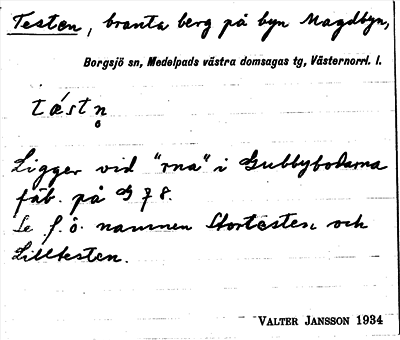 Testen, branta berg på byn Magdbyn,
Borgsjö sn, Medelpads västra domsagas tg, Västernorrl. l.
tástn̥
Ligger vid "rna" i Gubbybodarna
fäb. på G 7 8.
Se f. ö. namnen Stortesten och
Lilltesten.
VALTER JANSSON 1934